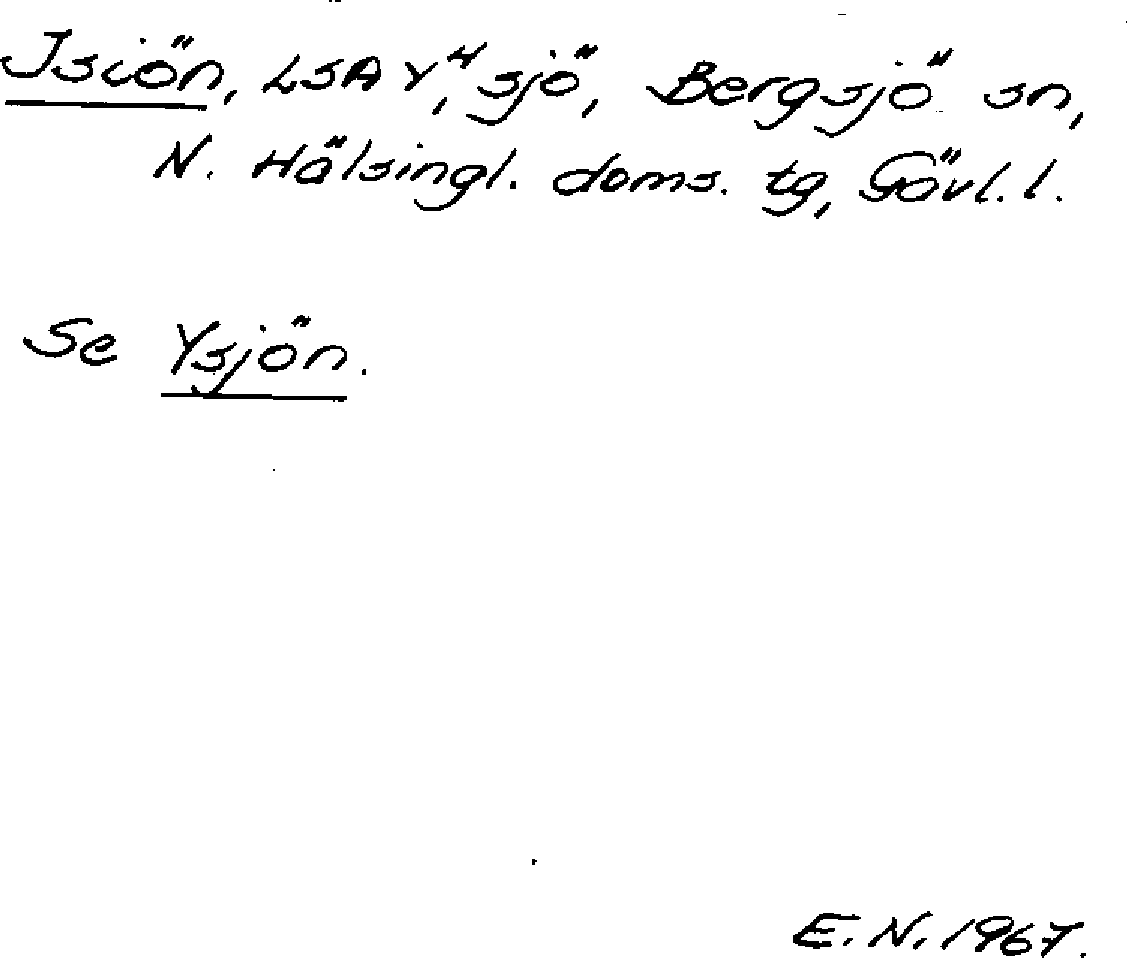 Jsiön, LSA Y,⁴ sjö, Bergsjö sn,
N. Hälsingl. doms. tg, Gävl. l.
Se Ysjön.
E. N. 1967.